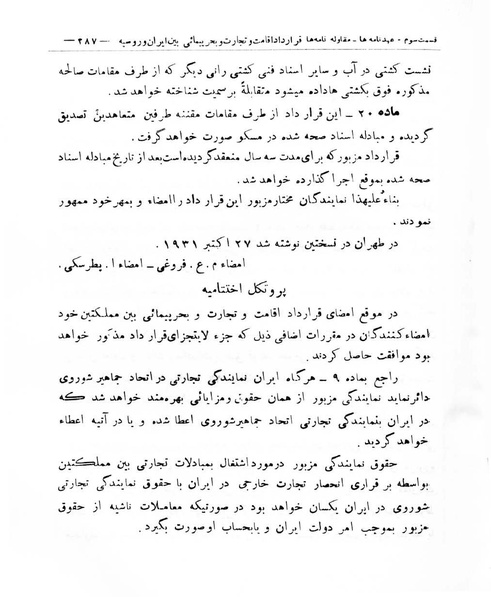 قسمت سوم - عهدنامه ها - مقاوله نامه ها قرارداد اقامت و تجارت و بحرپیمائی بین ایران و روسیه — ۲۸۷ —
نشست کشتی در آب و سایر اسناد فنی کشتی رانی دیگر که از طرف مقامات صالحه
مذکوره فوق بکشتی ها داده میشود متقابلةً برسمیت شناخته خواهد شد.
ماده ۲۰ ـ این قرار داد از طرف مقامات مقننه طرفین متعاهدین تصدیق
گردیده و مبادله اسناد صحه شده در مسکو صورت خواهد گرفت.
قرارداد مزبور که برای مدت سه سال منعقد گردیده است بعد از تاریخ مبادله اسناد
صحه شده بموقع اجرا گذارده خواهد شد.
بناءً علیهذا نمایندگان مختار مزبور این قرارداد را امضاء و بمهر خود ممهور
نمودند.
در طهران در نسختین نوشته شد ۲۷ اکتبر ۱۹۳۱.
امضاء م. ع. فروغی ـ امضاء ا. پطرسکی.
پروتکل اختتامیه
در موقع امضای قرارداد اقامت و تجارت و بحرپیمائی بین مملکتین خود
امضاء کنندگان در مقررات اضافی ذیل که جزء لایتجزای قرار داد مذکور خواهد
بود موافقت حاصل کردند.
راجع بماده ۹ ـ هرگاه ایران نمایندگی تجارتی در اتحاد جماهیر شوروی
دائر نماید نمایندگی مزبور از همان حقوق و مزایائی بهره‌مند خواهد شد که
در ایران بنمایندگی تجارتی اتحاد جماهیر شوروی اعطا شده و یا در آتیه اعطاء
خواهد گردید.
حقوق نمایندگی مزبور در مورد اشتغال بمبادلات تجارتی بین مملکتین
بواسطه بر قراری انحصار تجارت خارجی در ایران با حقوق نمایندگی تجارتی
شوروی در ایران یکسان خواهد بود در صورتیکه معاملات ناشیه از حقوق
مزبور بموجب امر دولت ایران و یا بحساب او صورت بگیرد.